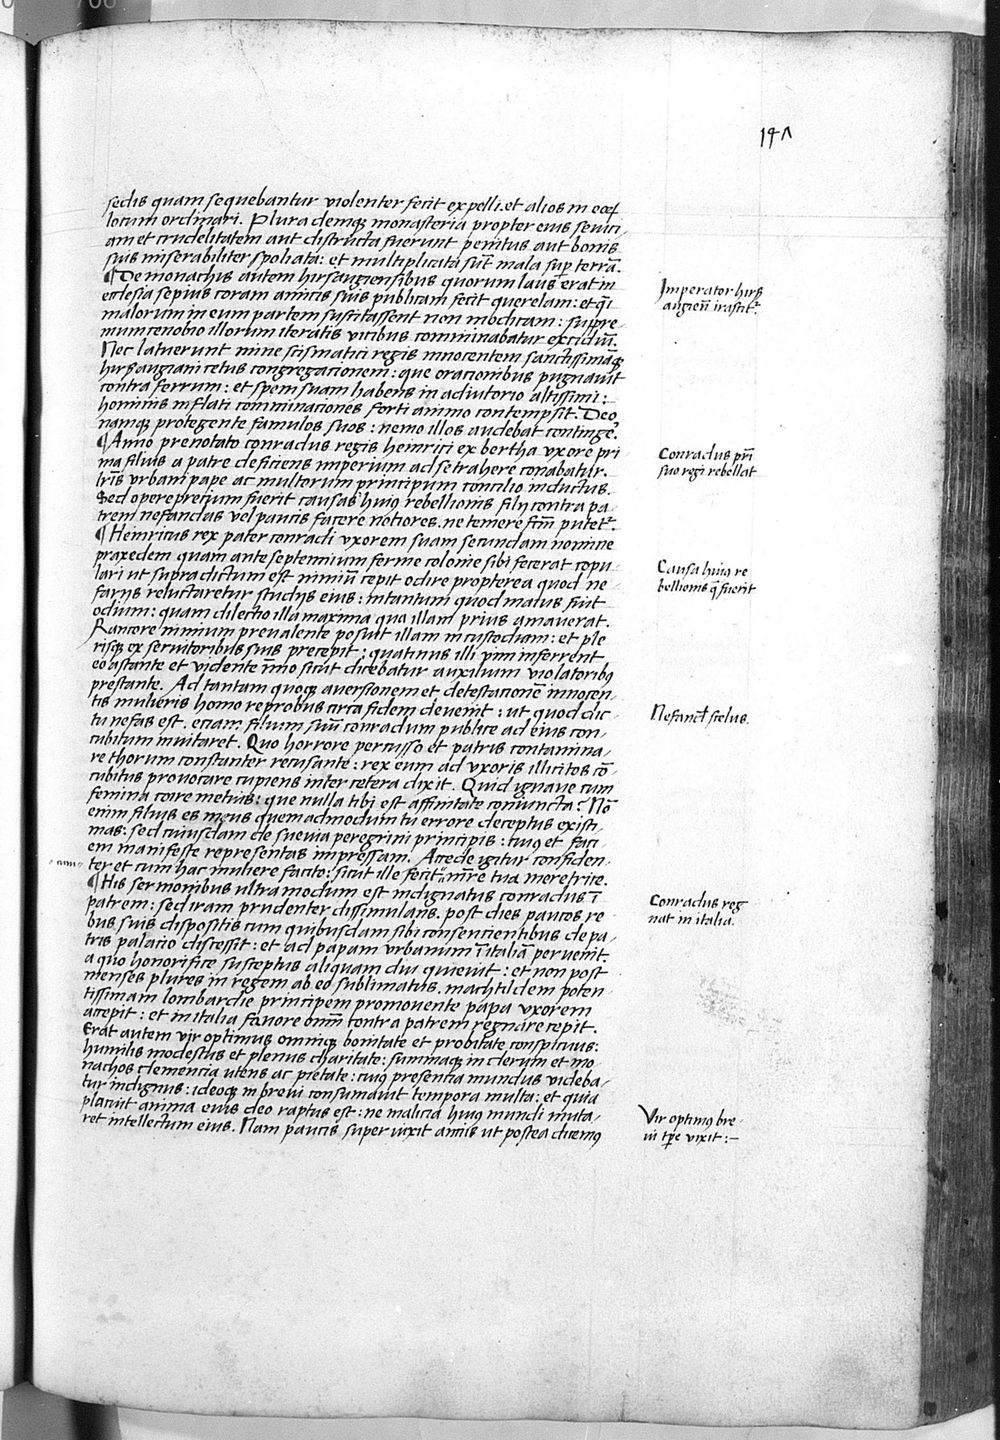 147
sedis quam sequebantur violenter fecit expelli. et alios in eoꝝ
locum ordinari. Plura deniqꝫ monasteria propter eius sevici
am et crudelitatem aut distructa fuerunt penitus aut bonis
suis miserabiliter spoliata: et multiplicata sūt mala suꝑ terrā.
¶ De monachis autem hirsaugiensibus quorum laus erat in
ecclesia sepius coram amicis suis publicam fecit querelam: et qͥ
malorum in eum partem suscitassent non modicam: supre-
mum cenobio illorum iteratis vicibus comminabatur excidiū.
Nec latuerunt mine scismatici regis innocentem sanctissimāqꝫ
hirsaugiani cetus congregacionem: que oracionibus pugnavit
contra ferrum: et spem suam habens in adiutorio altissimi:
hominis inflati comminaciones forti animo contempsit. Deo
namqꝫ protegente famulos suos: nemo illos audebat continge˜.
¶ Anno prenotato conradus regis heinrici ex bertha vxore pri
ma filius a patre deficiens imperium ad se trahere conabatur.
hris vrbani pape ac multorum principum concilio inductus.
Sed opere precium fuerit causas huiꝰ rebellionis filij contra pa-
trem nefandas vel paucis facere notiores. ne temere ftm̄ putet˜.
¶ Heinricus rex pater conradi vxorem suam secundam nomine
praxedem quam ante septennium ferme colonie sibi fecerat copu-
lari ut supra dictum est nimiū cepit odire propterea quod ne-
farijs reluctaretur studijs eius: intantum quod maius fuit
odium: quam dilectio illa maxima qua illam prius amaverat.
Rancore nimium prevalente posuit illam in custodiam: et ple
risqꝫ ex servitoribus suis precepit: quatinus illi vim inferrent
eo astante et vidente ı̄mo sicut dicebatur auxilium violatoribꝰ
prestante. Ad tantam quoqꝫ aversionem et detestacionē innocen-
tis mulieris homo reprobus circa fidem devenit: ut quod dic-
tu nefas est. eciam filium suū conradum publice ad eius con-
cubitum invitaret. Quo horrore percusso et patris contamina-
re thorum constanter recusante: rex eum ad vxoris illicitos cō-
cubitus provocare cupiens inter cetera dixit. Quid ignave cum
femina coire metuis: que nulla tibi est affinitate coniuncta? Nō
enim filius es meus quemadmodum tu errore deceptus existi-
mas: sed cuiusdam de suevia peregrini principis: cuiꝰ et faci-
em manifeste representas impressam. Accede igitur confiden-
ter et cum hac muliere facito: sicut ille fecit cum mr̄e tua meretrice.
¶ His sermonibus ultra modum est indignatus conradus ī
patrem: sed iram prudenter dissimulans. post dies paucos re
bus suis dispositis cum quibusdam sibi consencientibus de pa-
tris palacio discessit: et ad papam vrbanum ī italiā pervenit.
a quo honorifice susceptus aliquam diu quievit: et non post
menses plures in regem ab eo sublimatus. machtildem poten-
tissimam lombardie principem promovente papa vxorem
accepit: et in italia favore omn̄m contra patrem regnare cepit.
Erat autem vir optimus omniqꝫ bonitate et probitate conspicuus:
humilis modestus et plenus charitate: summaqꝫ in clerum et mo-
nachos clemencia utens ac pietate: cuiꝰ presentia mundus videba-
tur indignus: ideoqꝫ in brevi consumavit tempora multa: et quia
placuit anima eius deo raptus est: ne malicia huiꝰ mundi muta-
ret intellectum eius. Nam paucis supervixit annis ut postea dicemꝰ
Imperator hirs
augien̄ irascit˜.
Conradus pr̄i
suo regi rebellat
Causa huiꝰ re
bellionis q̄ fuerit
Nefand̄ scelus.
-cum-
Conradus reg
nat in italia.
Vir optimꝰ bre-
vi tꝑe vixit:-